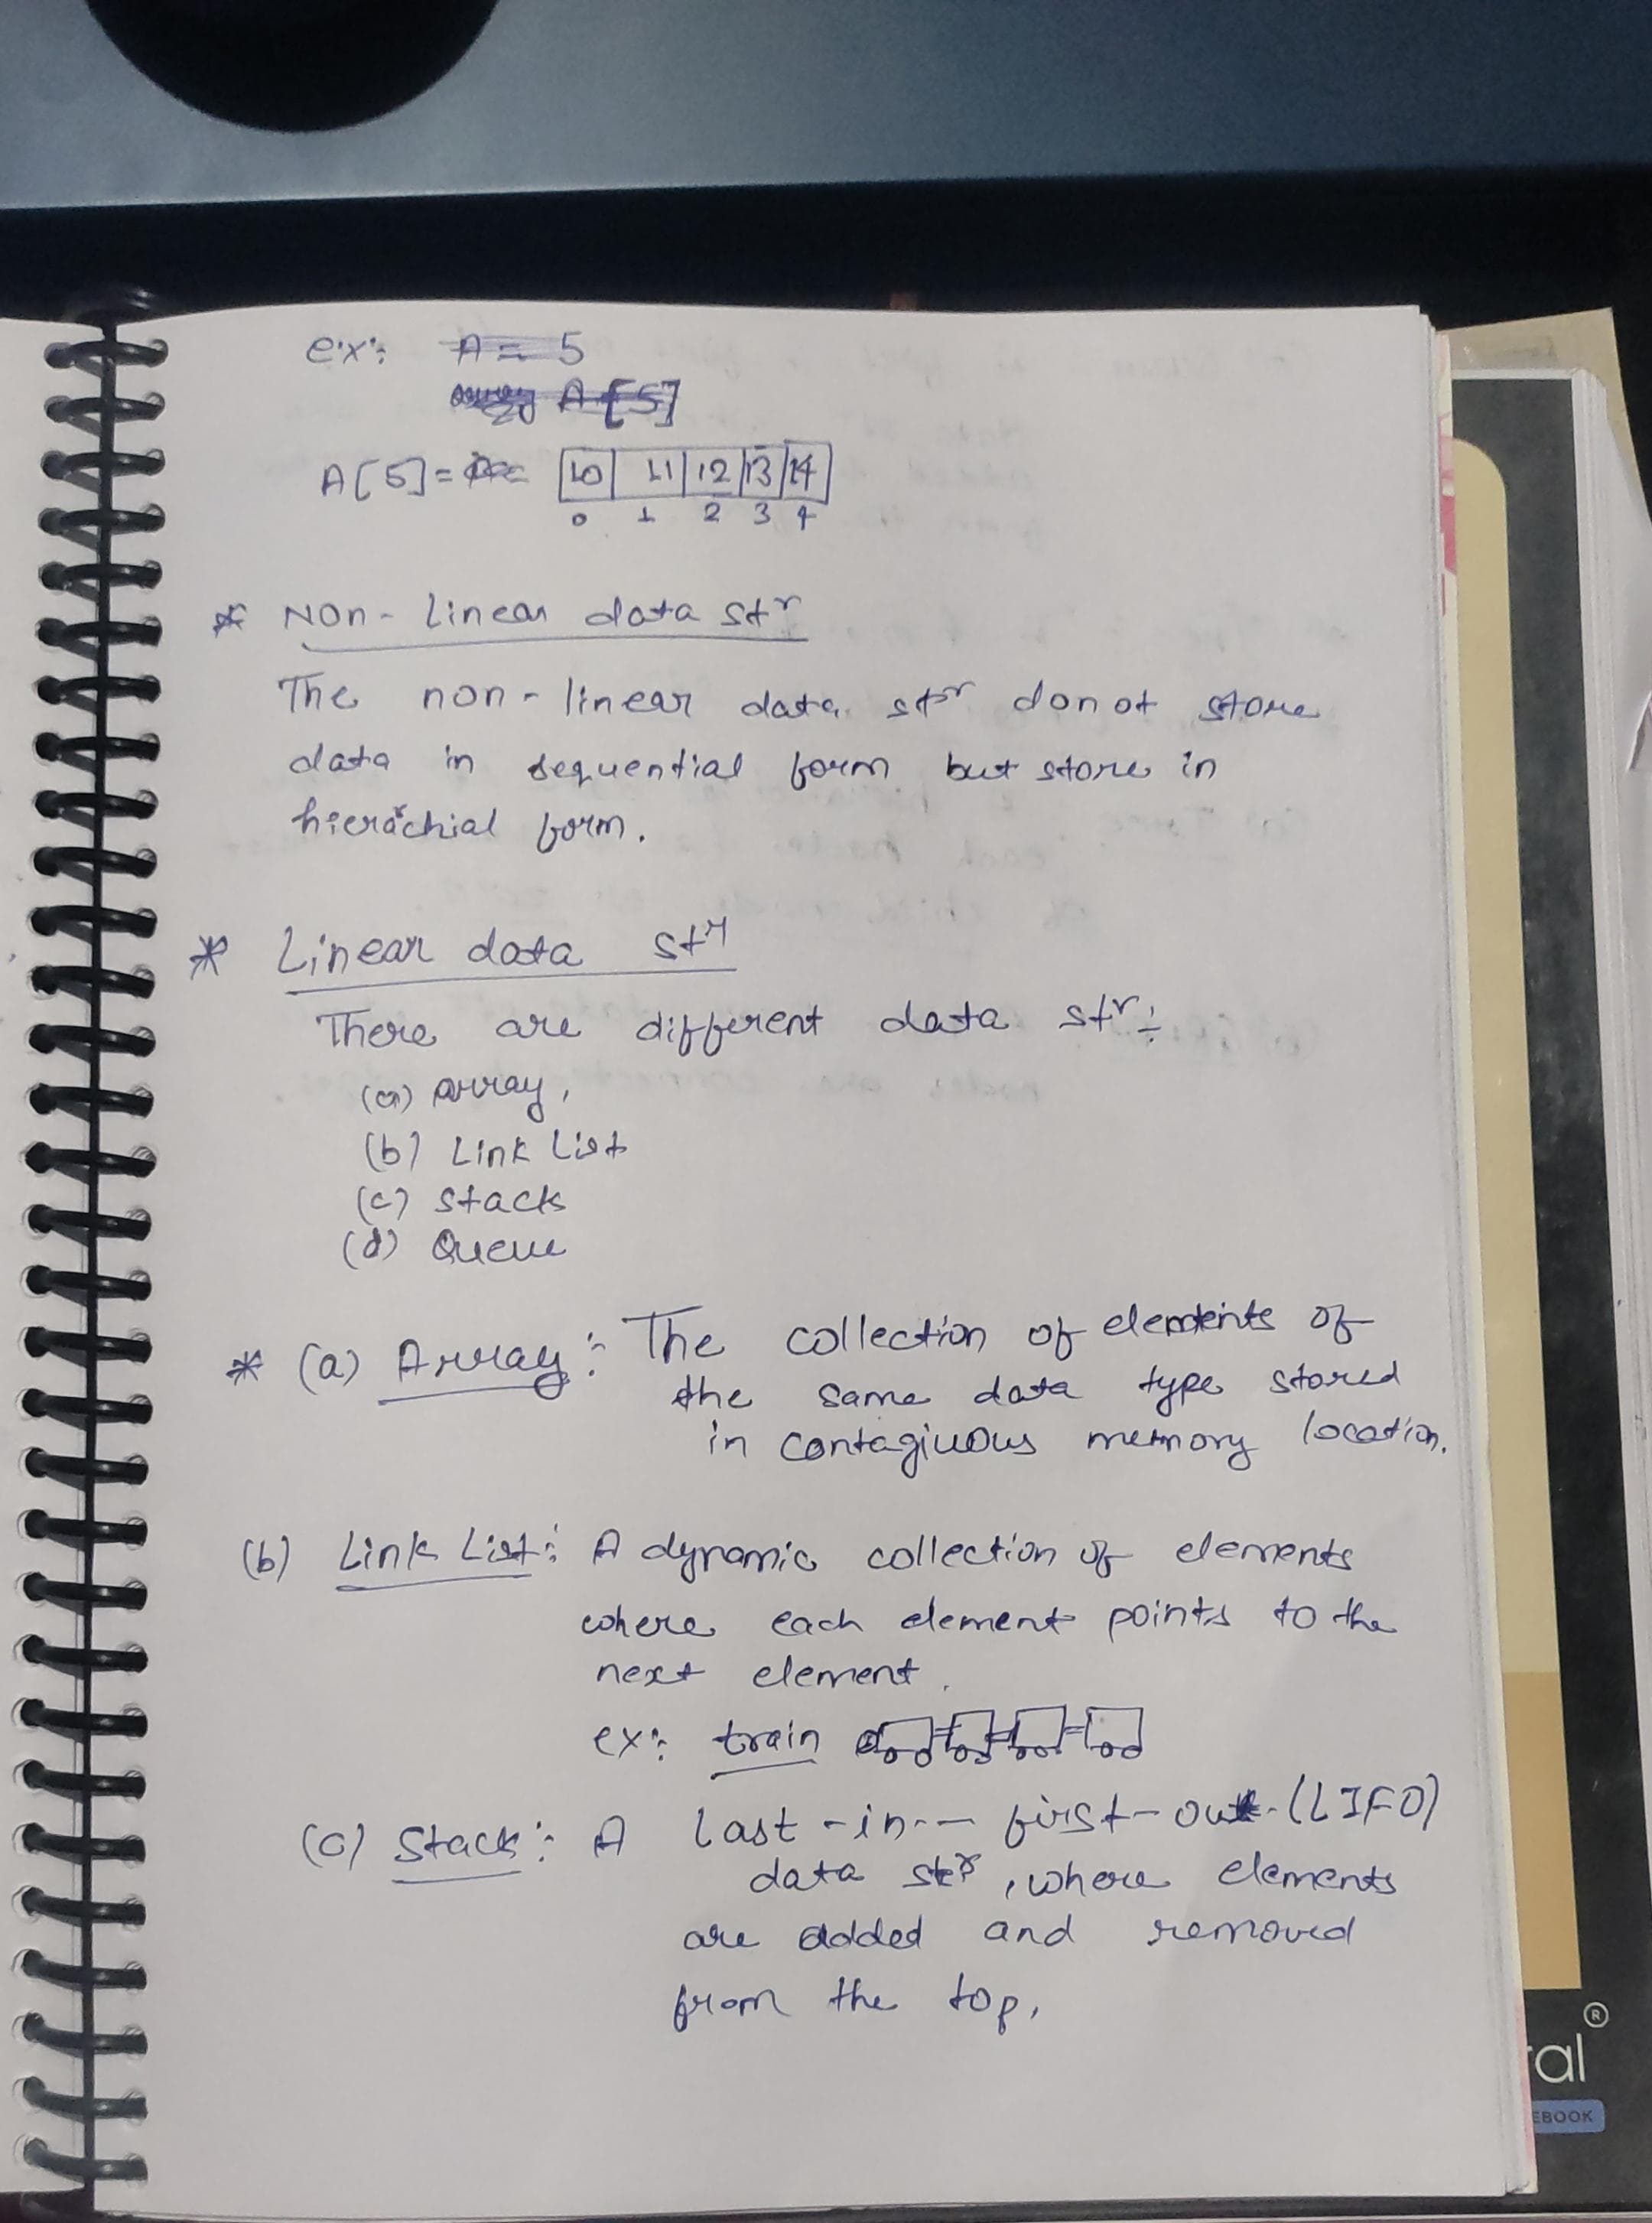 ex:
A = 5
array A[5]
A[5] = 10 11 12 13 14
0 1 2 3 4
* Non-Linear data str
The non-linear data str donot store
data in sequential form but store in
hierarchial form.
* Linear data str
There are different data str:
(a) Array,
(b) Link List
(c) Stack
(d) Queue
* (a) Array: The collection of elements of
the same data type stored
in contagiuous memory location.
(b) Link List: A dynamic collection of elements
where each element points to the
next element.
ex: train
(c) Stack: A last-in-- first-out-(LIFO)
data str, where elements
are added and removed
from the top.
ral®
EBOOK